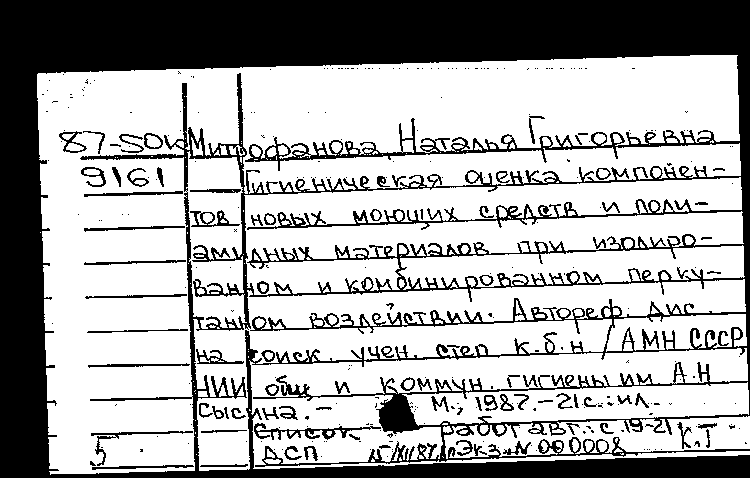 87-SOK Митрофанова, Наталья Григорьевна
9161 Гигиеническая оценка компонен-
тов новых моющих средств и поли-
амидных материалов при изолиро-
ванном и комбинированном перку-
танном воздействии. Автореф. дис.
на соиск. учен. степ к.б.н / АМН СССР,
НИИ общ и коммун. гигиены им А.Н
Сысина. - М., 1987. - 21 с.: ил.
Список работ авт.: с. 19-21 К.Т
5 ДСП 15/XII 87 Экз. N 000008